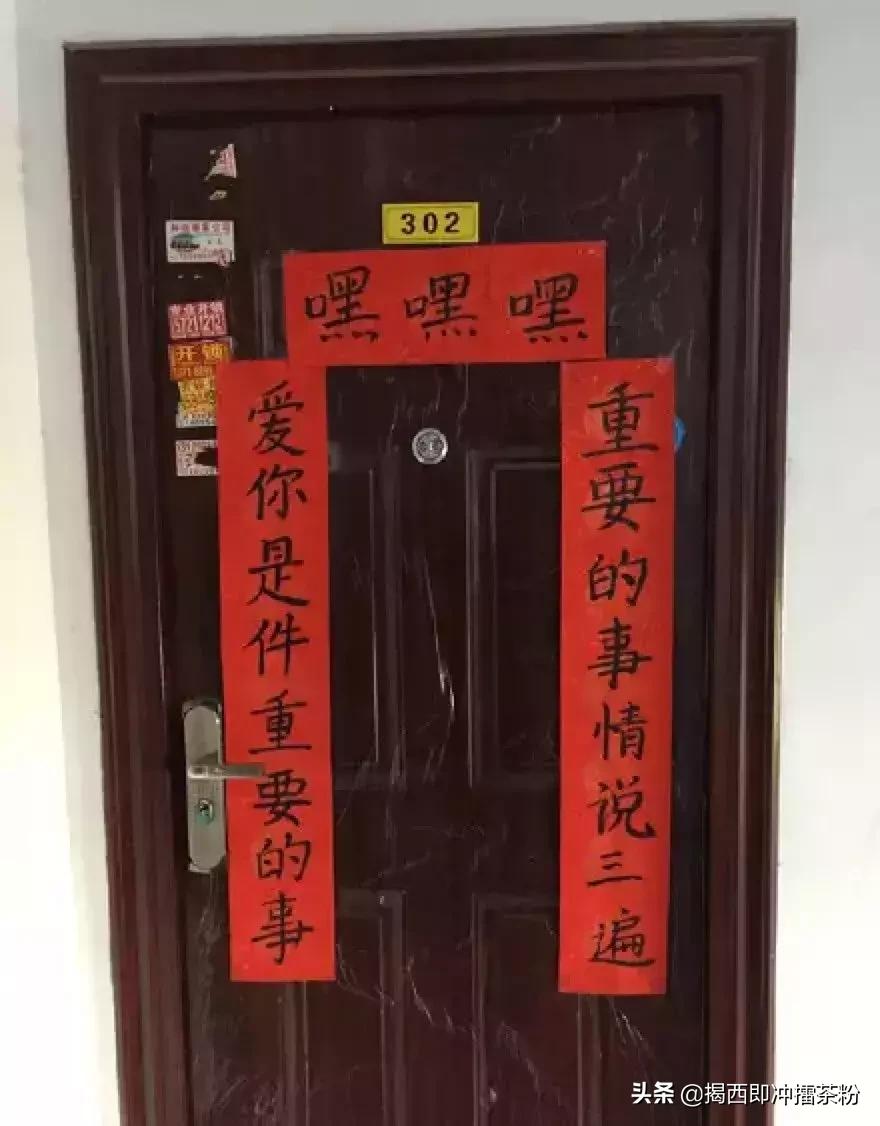 302
嘿嘿嘿
重要的事情说三遍
爱你是件重要的事
开锁
头条 @揭西即冲擂茶粉